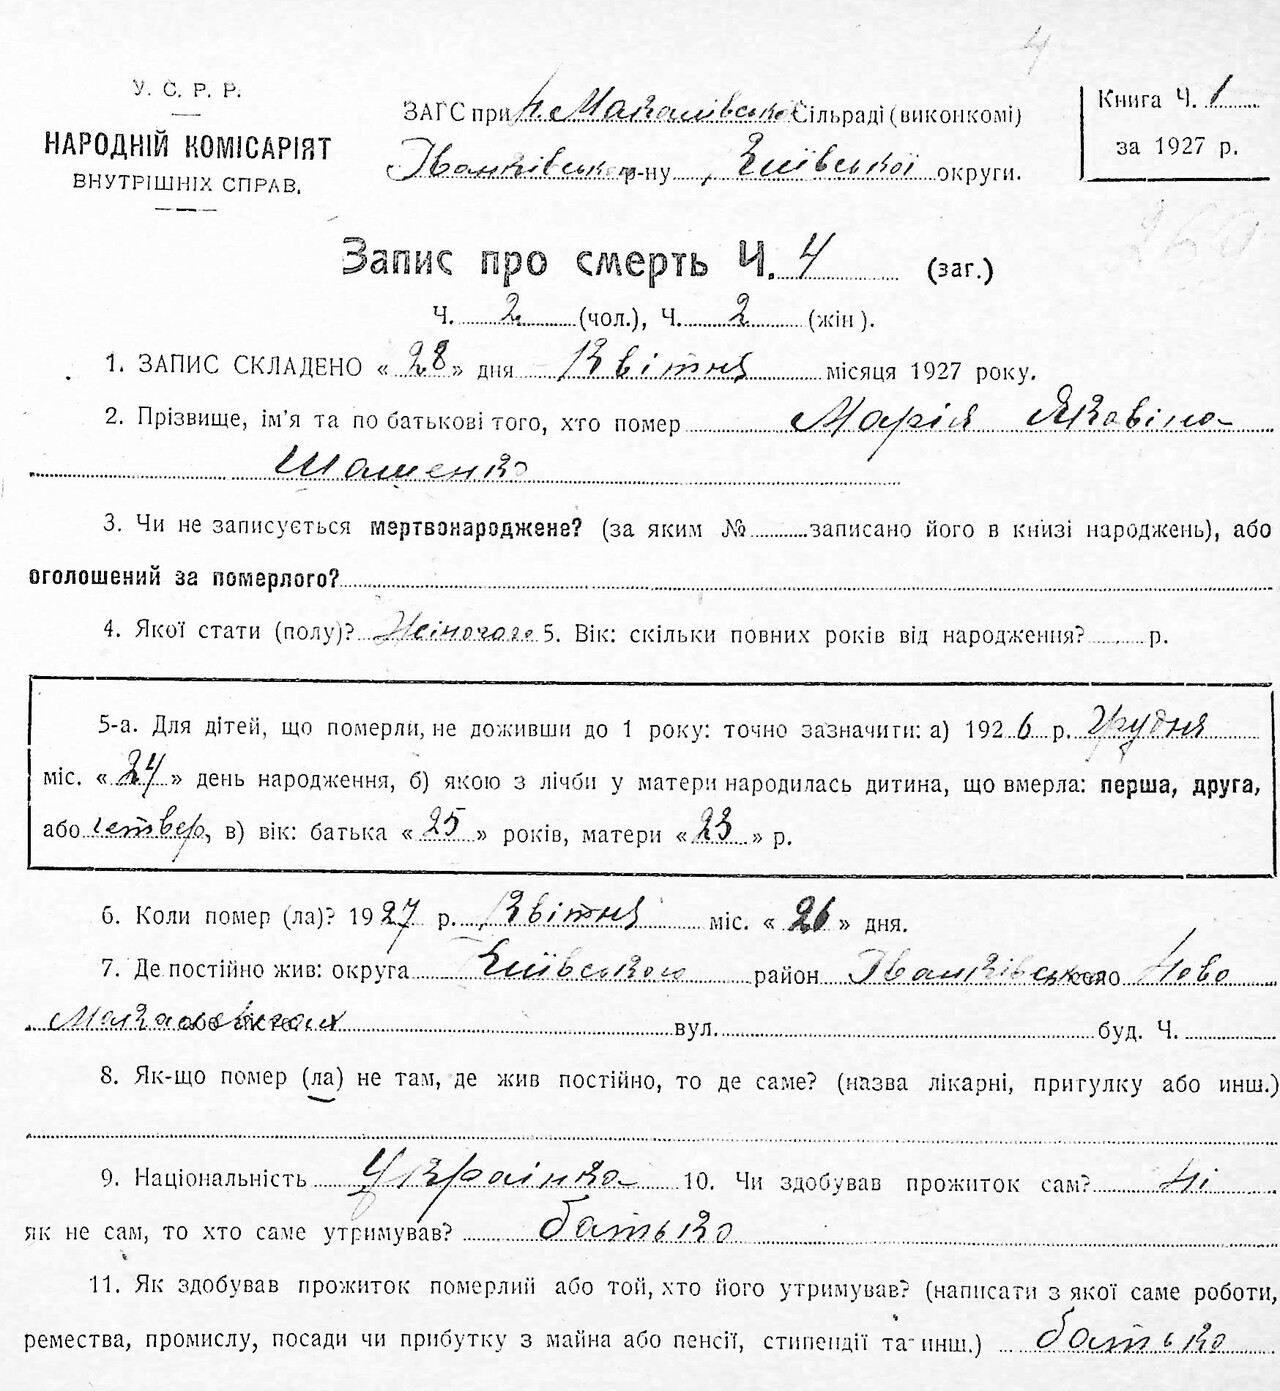 4
У. С. Р. Р.
НАРОДНІЙ КОМІСАРІЯТ
ВНУТРІШНІХ СПРАВ.
ЗАГС при Н. Макалівській Сільраді (виконкомі)
Іванківського р-ну, Київської округи.
Книга Ч. 1
за 1927 р.
260
Запис про смерть Ч. 4 (заг.)
Ч. 2 (чол.), Ч. 2 (жін).
1. ЗАПИС СКЛАДЕНО « 28 » дня Квітня місяця 1927 року.
2. Прізвище, ім'я та по батькові того, хто помер Марія Яковіна
Шаменко
3. Чи не записується мертвонароджене? (за яким № записано його в книзі народжень), або
оголошений за померлого?
4. Якої стати (полу)? Жіночого 5. Вік: скільки повних років від народження? р.
5-а. Для дітей, що померли, не доживши до 1 року: точно зазначити: а) 1926 р. Грудня
міс. « 24 » день народження, б) якою з лічби у матери народилась дитина, що вмерла: перша, друга,
або четвер, в) вік: батька « 25 » років, матери « 23 » р.
6. Коли помер (ла)? 1927 р. Квітня міс. « 26 » дня.
7. Де постійно жив: округа Київського район Іванківського село Ново
або місто вул. буд. Ч.
8. Як-що помер (ла) не там, де жив постійно, то де саме? (назва лікарні, притулку або инш.)
9. Національність Украінка 10. Чи здобував прожиток сам? Ні
як не сам, то хто саме утримував? батько
11. Як здобував прожиток померлий або той, хто його утримував? (написати з якої саме роботи,
ремества, промислу, посади чи прибутку з майна або пенсії, стипендії та инш.) батько